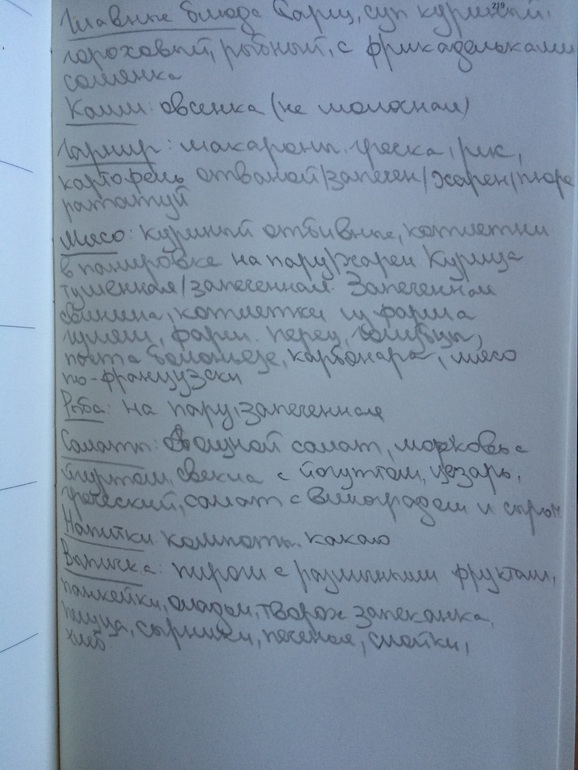 Главные блюда Борщ, суп куриный,
гороховый, рыбный, с фрикадельками
солянка
Каши: овсянка (не молочная)
Гарнир: макароны, гречка, рис,
картофель отварной/запечен/жарен/пюре
рататуй
Мясо: куриный отбивные, котлетки
в панировке на пару/жарен Курица
тушенная/запеченная. Запеченная
свинина, котлетки из фарша
гуляш, фарш. перец, голубцы,
паста болоньезе, карбонара, мясо
по-французски
Рыба: на пару, запеченная
Салаты: овощной салат, морковь с
йогуртом, свекла с йогуртом, цезарь,
греческий, салат с виноградом и сыром
Напитки: компоты какао
Выпичка: пироги с различными фруктами,
панкейки, оладьи, творож запеканка,
пицца, сырники, печенье, слойки,
хлеб.